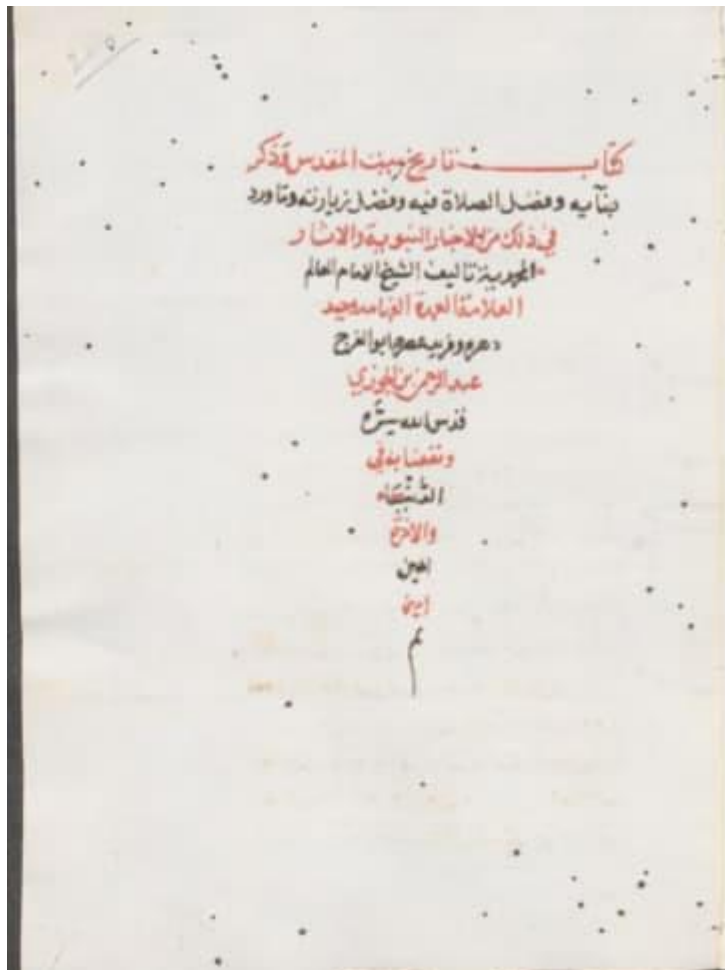 كتاب تاريخ بيت المقدس وذكر
بنآيه وفضل الصلاة فيه وفضل زيارته وماورد
في ذلك من الاخبار النبوية والاثار
المحمدية تاليف الشيخ الامام العالم
العلامة العمدة الفهامه وحيد
دهره وفريد عصره ابو الفرج
عبد الرحمن بن الجوزي
قدس الله سره
ونفعنا به في
الدنيا
والاخرة
امين
امين
تم